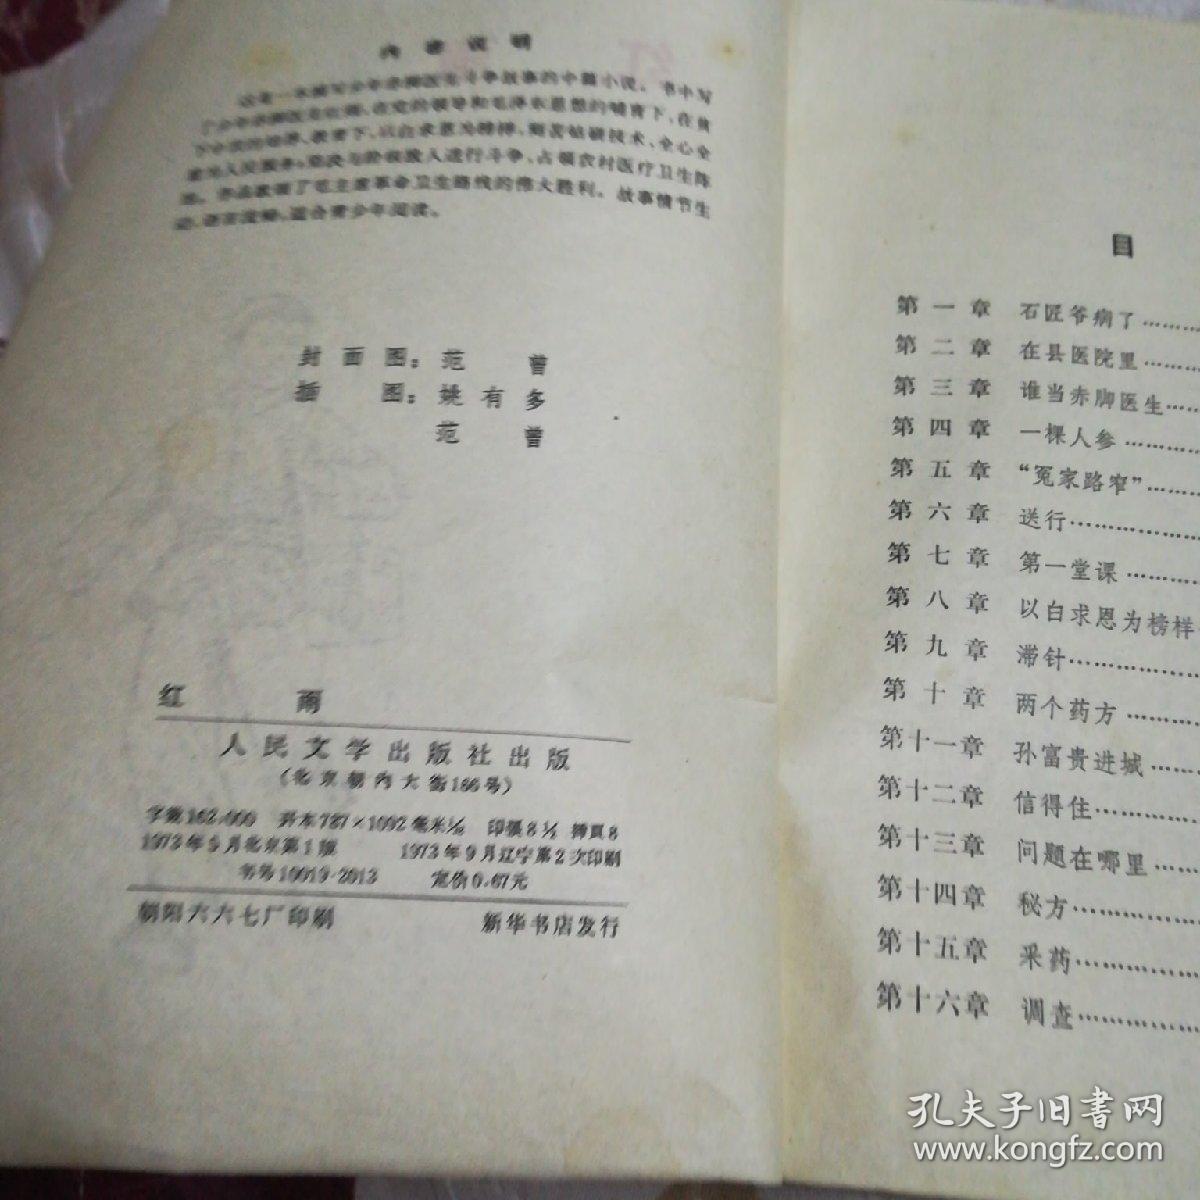 内容说明
这是一本描写少年赤脚医生斗争故事的中篇小说。书中写
了少年赤脚医生红雨，在党的领导和毛泽东思想的哺育下，在贫
下中农的培养、教育下，以白求恩为榜样，刻苦钻研技术，全心全
意为人民服务；坚决与阶级敌人进行斗争，占领农村医疗卫生阵
地。作品歌颂了毛主席革命卫生路线的伟大胜利。故事情节生
动，语言流畅，适合青少年阅读。
封面图：范曾
插图：姚有多
范曾
红雨
人民文学出版社出版
（北京朝内大街166号）
字数162,000 开本787×1092毫米1/32 印张8½ 插页8
1973年5月北京第1版 1973年9月辽宁第2次印刷
书号10019·2013 定价0.67元
朝阳六六七厂印刷 新华书店发行
目
第一章 石匠爷病了……
第二章 在县医院里……
第三章 谁当赤脚医生……
第四章 一棵人参……
第五章 “冤家路窄”……
第六章 送行……
第七章 第一堂课……
第八章 以白求恩为榜样
第九章 滞针……
第十章 两个药方……
第十一章 孙富贵进城……
第十二章 信得住……
第十三章 问题在哪里……
第十四章 秘方……
第十五章 采药……
第十六章 调查……
孔夫子旧书网
www.kongfz.com